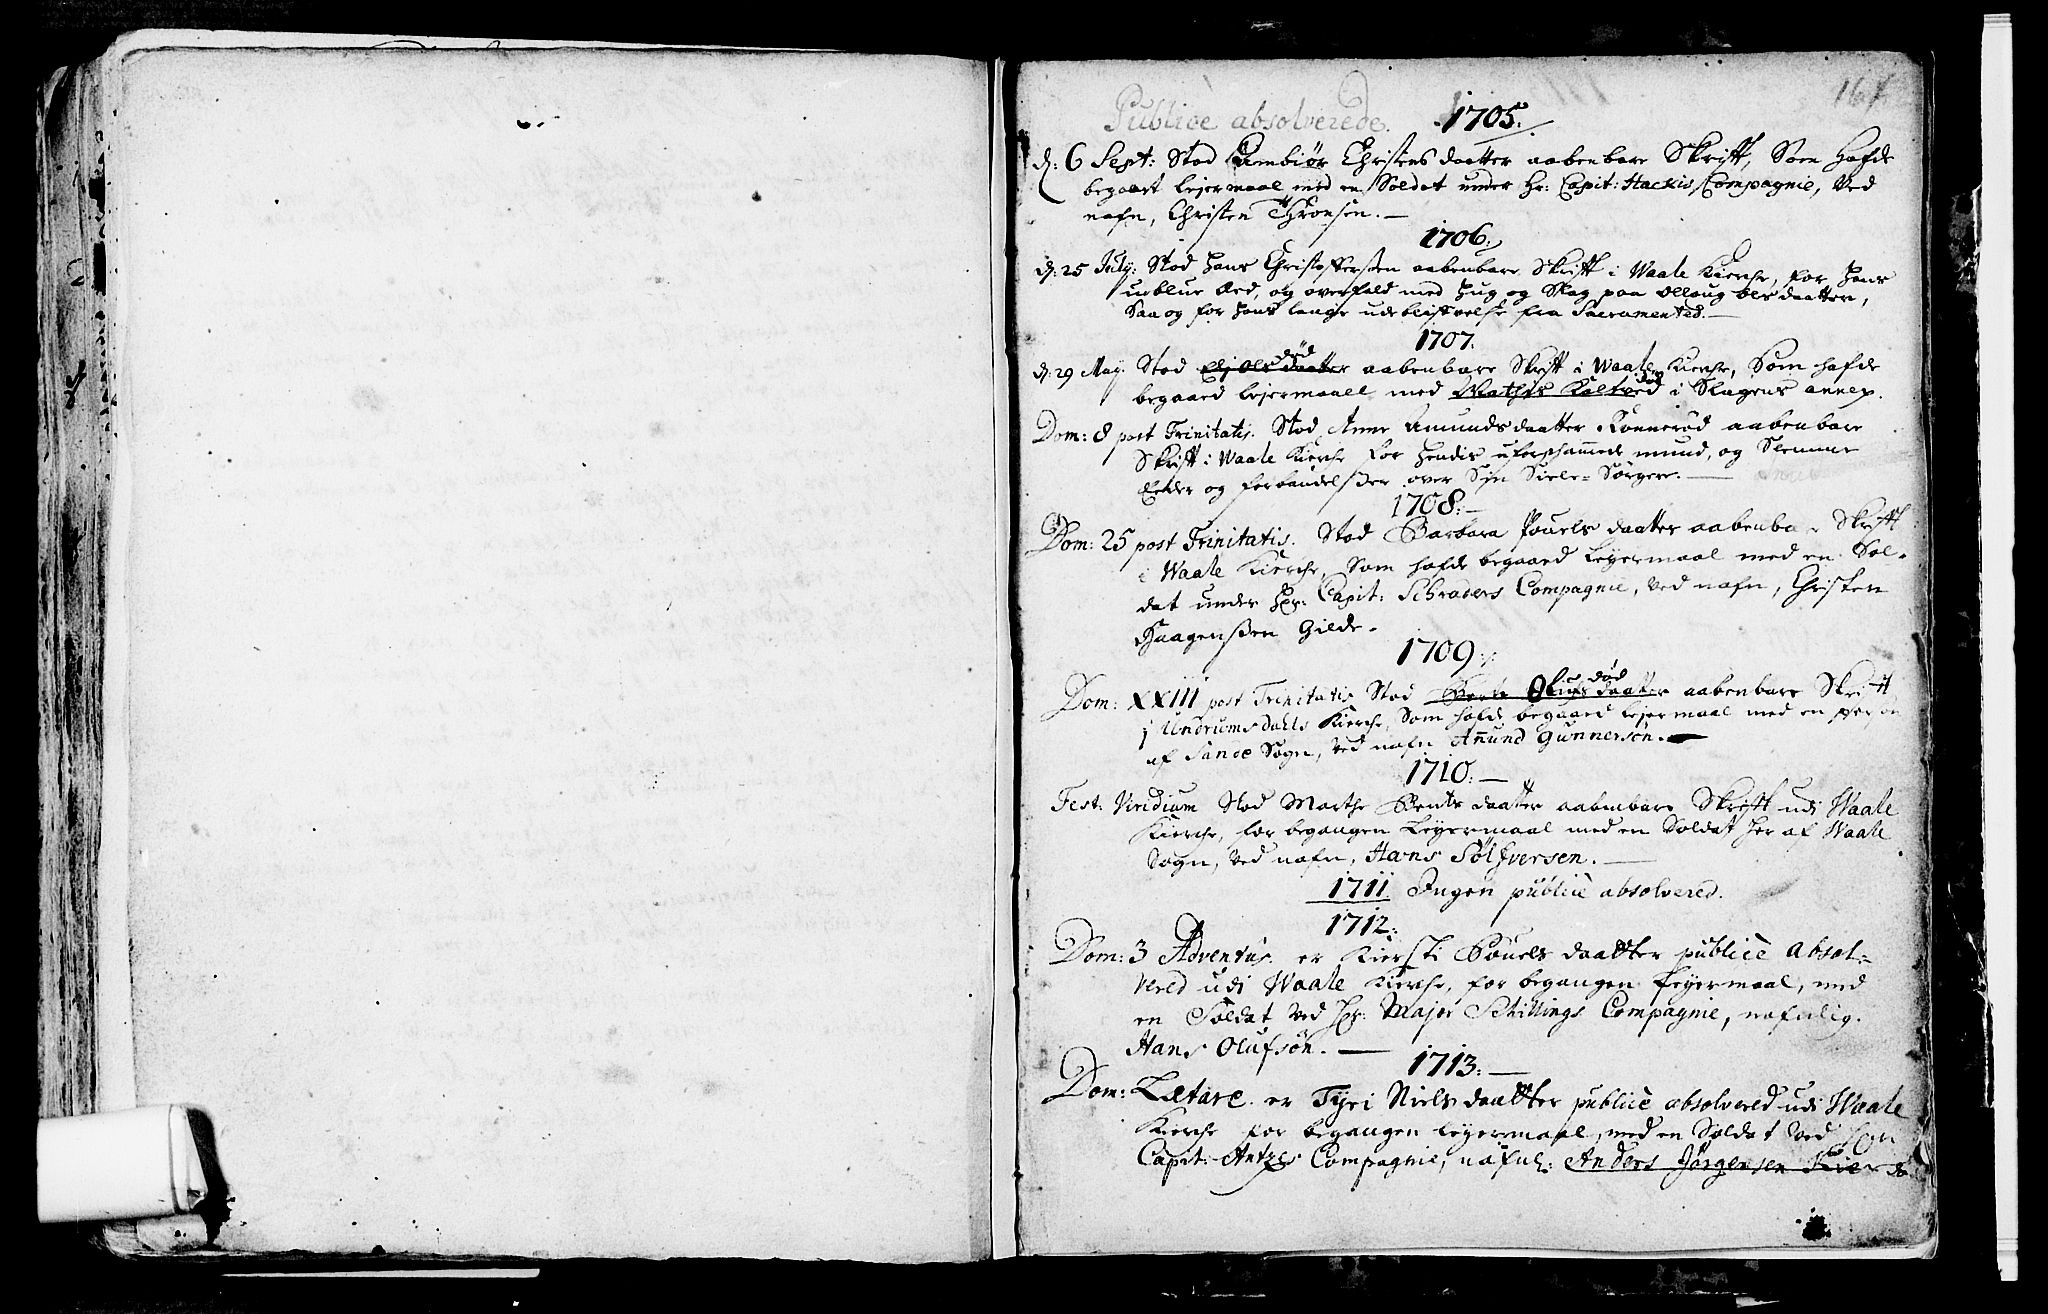 167
Publicè absolverede. 1705.
d: 6 Sept: Stod Gunbiør Christens daatter aabenbare Skrifft, Som hafde
begaaet lejermaal med en Soldat under Hr: Capit: Hackis Compagnie, Ved
nafn, Christen Thronsen.
1706.
d: 25 July: Stod Hans Christoffersøn aabenbare Skrifft i Waale Kierche, for Hans
ublue Eed, og overfald med Hug og Slag paa Olloug Ols daatter,
Saa og for Hans lange udeblifvelse fra Sacramented.
1707.
død
d: 29 May. Stod Elj Ols daatter aabenbare Skrifft i Waale Kierche, Som hafde
død
begaaed lejermaall med Mathis Kaltved i Slagens annex.
Dom: 8 post Trinitatis. Stod Anne Amunds daatter Rønnerød aabenbare
Skrifft i Waale Kierche for Hendis uforschammede mund, og Slemme
Eeder og forbandelsser over Syn Siele-Sørgere.
1708.
Dom: 25 post Trinitatis. Stod Barbara Pouels daatter aabenbare Skrifft
i Waale Kierche, Som hafde begaaed Lejermaal med en Sol-
dat under Hr: Capit: Schraders Compagnie, Ved nafn, Christen
Haagenssen Gilde.
1709.
død
Dom: XXIII post Trinitatis Stod Berte Olufs daatter aabenbare Skrifft
i Undrumsdahls Kierche, Som hafde begaaed lejermaal med en person
af Sande Sogn, Ved nafn Anund Gunnersøn.
1710.
Fest: Viridium Stod Marthe Bents daatter aabenbare Skrifft udi Waale
Kierche, for begangen Lejermaal med en Soldat her af Waale
Sogn, Ved nafn, Hans Sølfversen.
1711. Ingen publicè absolvered.
1712.
Dom: 3 Adventus. er Kiersti Pouels daatter publicè absol-
vered udi Waale Kierche, for begangen Lejermaal, med
en Soldat Ved Hr: Major Schillings Compagnie, nafnlig.
Hans Olufsøn.
1713.
Dom: Lætare. er Tyri Niels daatter publicè absolvered udi Waale
Kierche for begangen lejermaal, med en Soldat Ved Hrn
Capit: Antzes Compagnie, nafnl: Anders Jørgensen